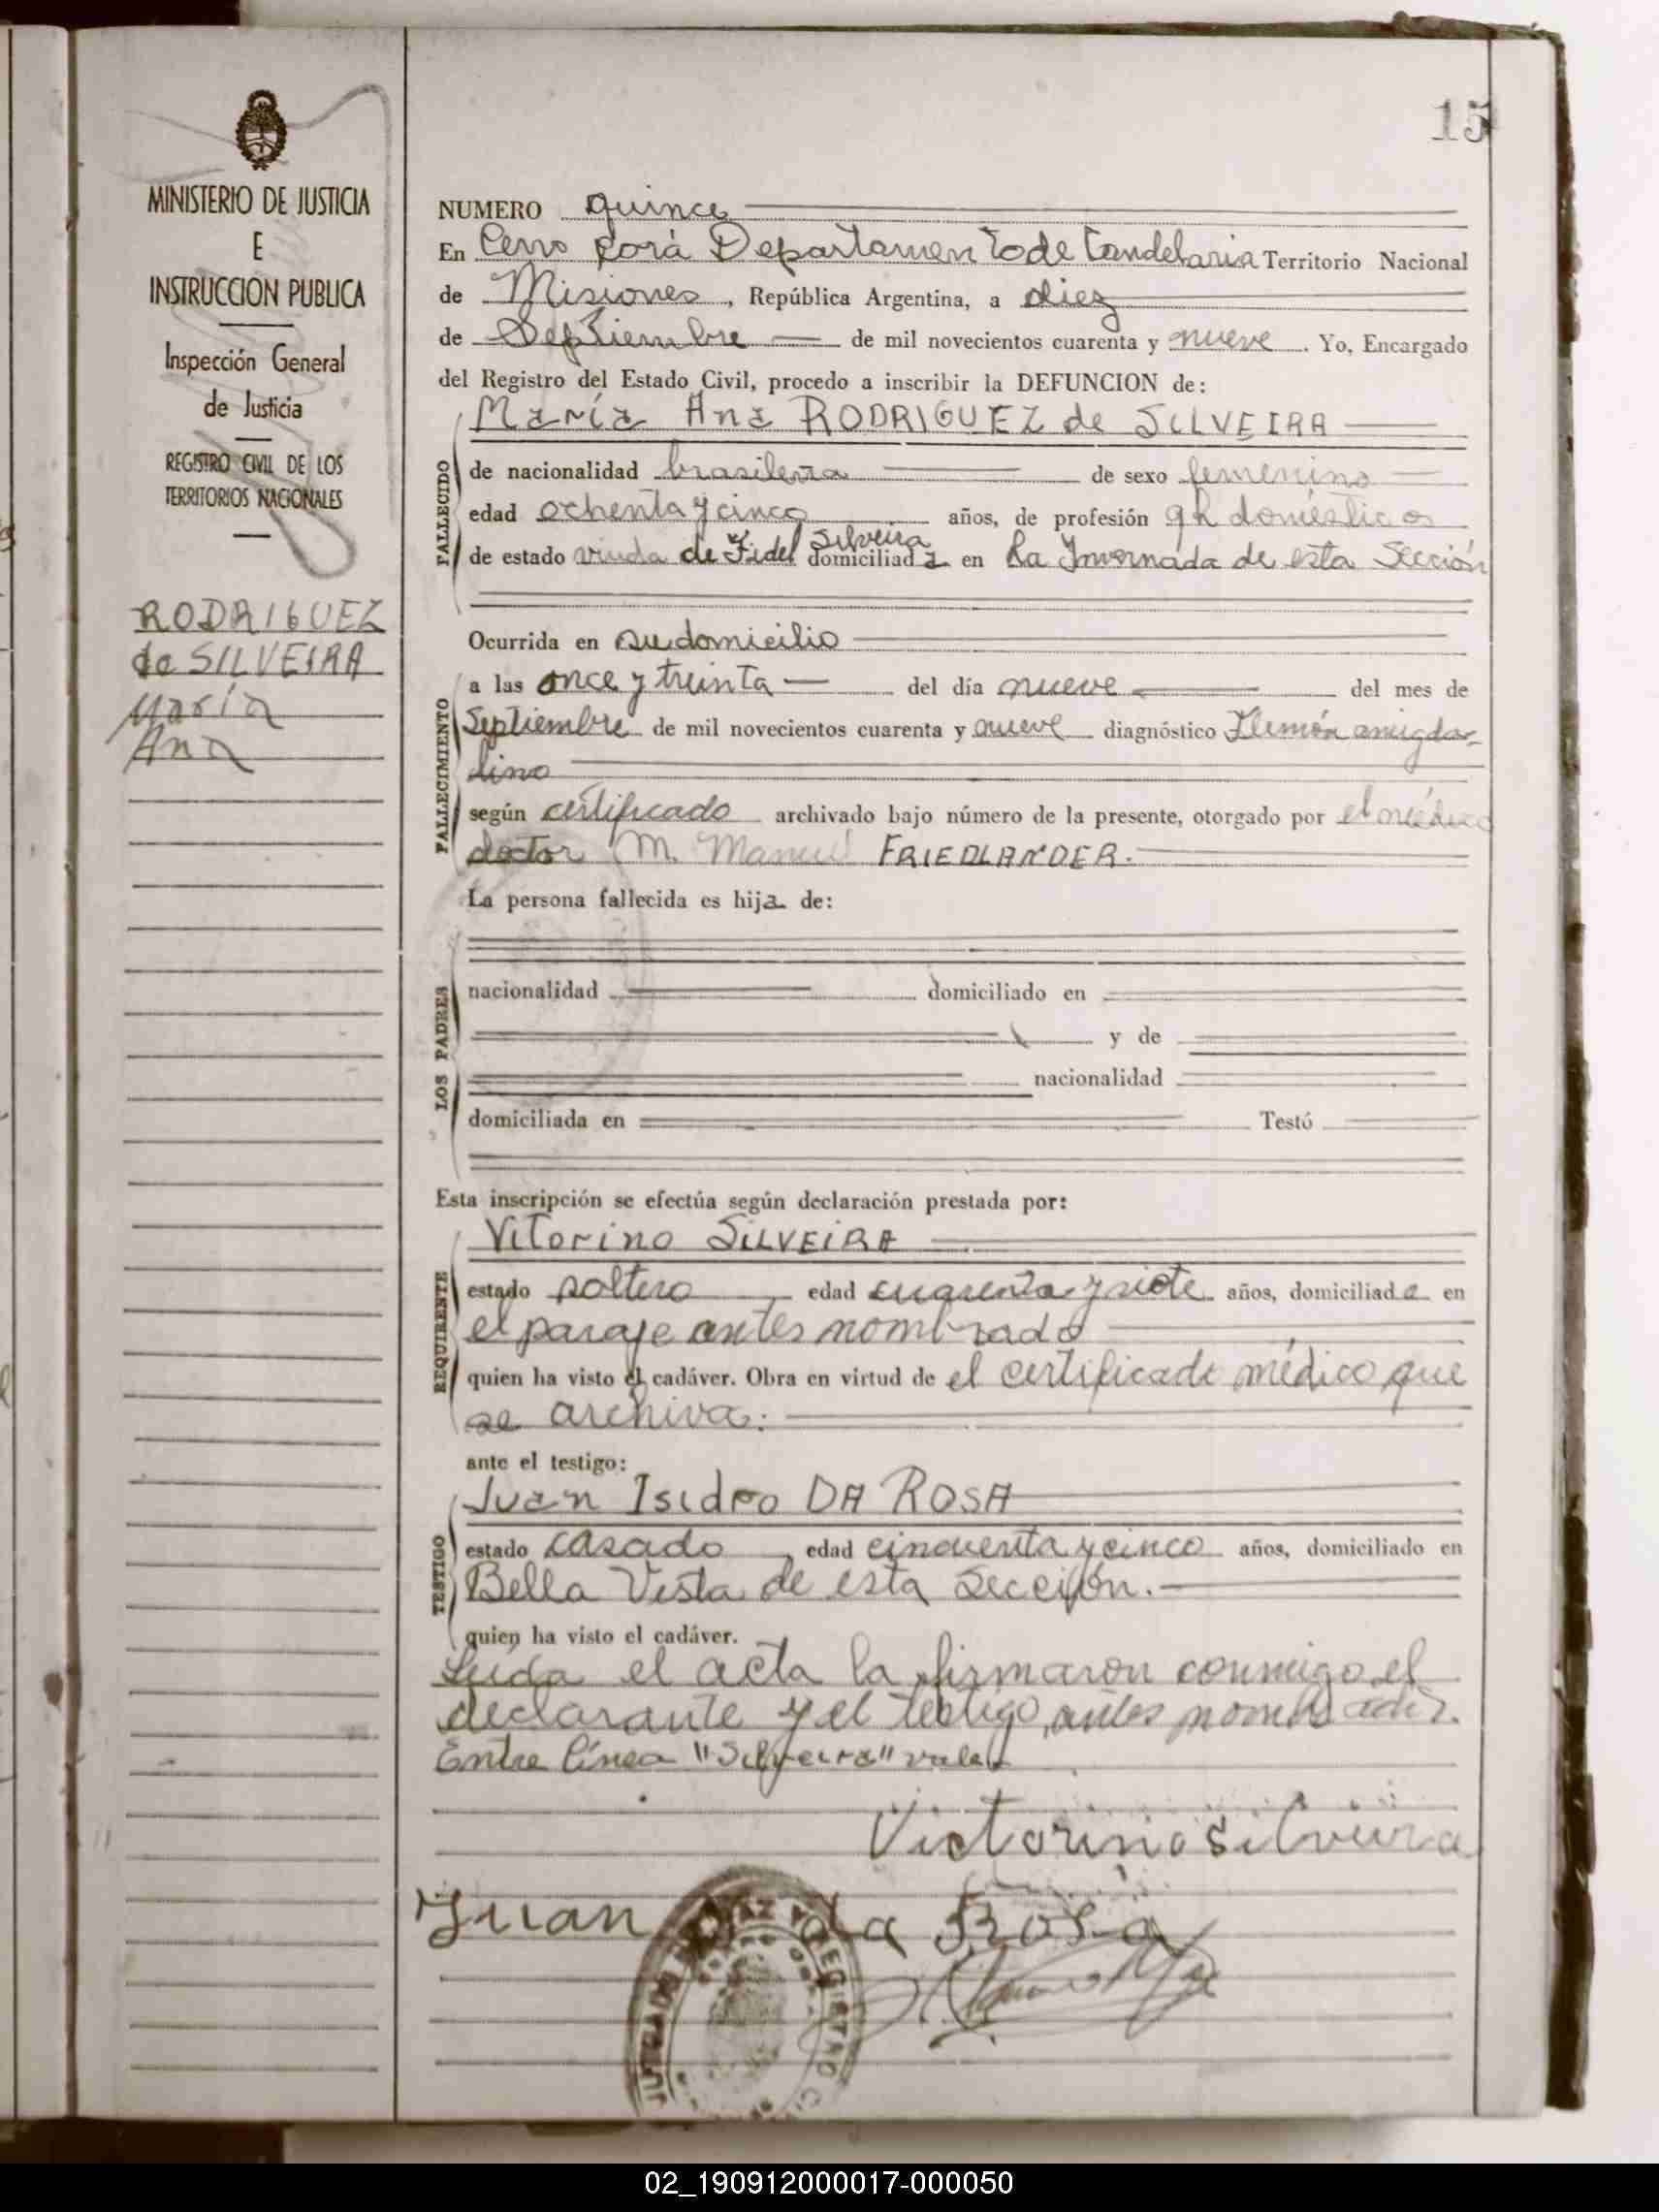 15
MINISTERIO DE JUSTICIA
E
INSTRUCCION PUBLICA
Inspección General
de Justicia
REGISTRO CIVIL DE LOS
TERRITORIOS NACIONALES
RODRIGUEZ
de SILVEIRA
María
Ana
NUMERO quince
En Cerro Corá Departamento de Candelaria Territorio Nacional
de Misiones, República Argentina, a diez
de Septiembre de mil novecientos cuarenta y nueve. Yo, Encargado
del Registro del Estado Civil, procedo a inscribir la DEFUNCION de:
María Ana RODRIGUEZ de SILVEIRA
FALLECIDO
de nacionalidad brasilera de sexo femenino
edad ochenta y cinco años, de profesión qh domésticos
Silveira
de estado viuda de Fidel domiciliada en La Invernada de esta Sección
Ocurrida en su domicilio
FALLECIMIENTO
a las once y treinta del día nueve del mes de
Septiembre de mil novecientos cuarenta y nueve diagnóstico Flemón amigda-
lino
según certificado archivado bajo número de la presente, otorgado por el médico
doctor M. FRIEDLANDER.
La persona fallecida es hija de:
LOS PADRES
nacionalidad domiciliado en
y de
nacionalidad
domiciliada en Testó
Esta inscripción se efectúa según declaración prestada por:
Vitorino SILVEIRA
REQUIRENTE
estado soltero, edad cuarenta y siete años, domiciliado en
el paraje antes nombrado
quien ha visto el cadáver. Obra en virtud de el certificado médico que
se archiva.
ante el testigo:
Juan Isidro DA ROSA
TESTIGO
estado casado, edad cincuenta y cinco años, domiciliado en
Bella Vista de esta Sección.
quien ha visto el cadáver.
Leída el acta la firmaron conmigo el
declarante y el testigo, antes nombrados.
Entre línea "Silveira" vale
Victorino Silveira
Juan da Rosa
JUZGADO DE PAZ REGISTRO
02_190912000017-000050